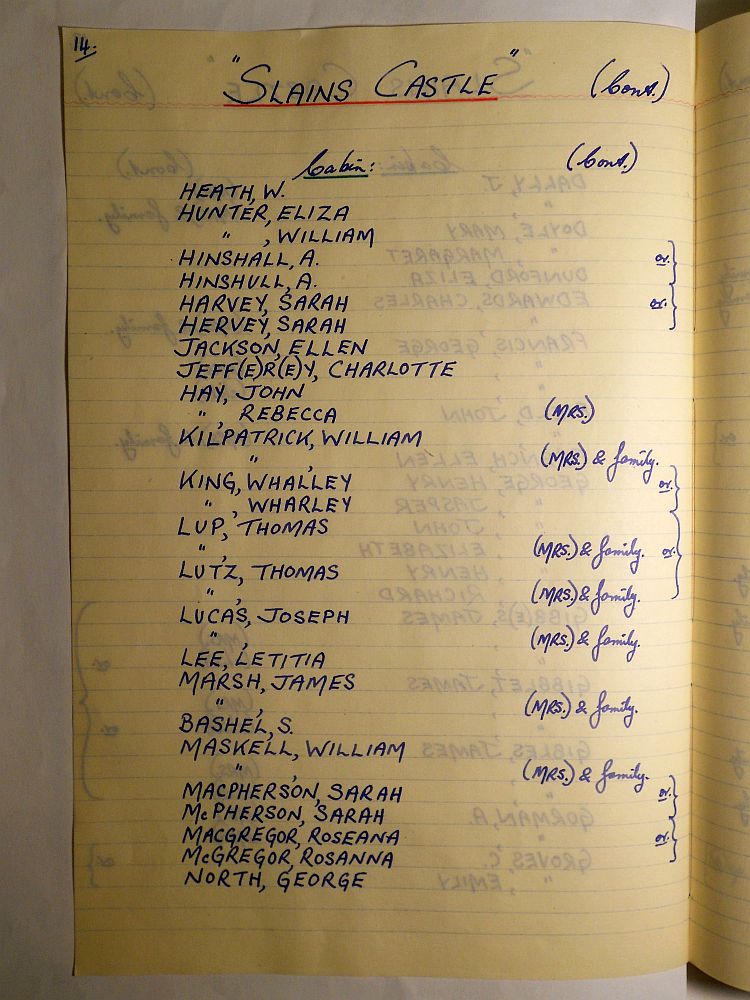 14.
"SLAINS CASTLE" (Cont.)
Cabin: (Cont.)
HEATH, W.
HUNTER, ELIZA
" , WILLIAM
HINSHALL, A. or }
HINSHULL, A.
HARVEY, SARAH or }
HERVEY, SARAH
JACKSON, ELLEN
JEFF(E)R(E)Y, CHARLOTTE
HAY, JOHN
" , REBECCA (MRS.)
KILPATRICK, WILLIAM
" , (MRS.) & family.
KING, WHALLEY or }
" , WHARLEY
LUP, THOMAS
" , (MRS.) & family. or }
LUTZ, THOMAS
" , (MRS.) & family.
LUCAS, JOSEPH
" , (MRS.) & family.
LEE, LETITIA
MARSH, JAMES
" , (MRS.) & family.
BASHEL, S.
MASKELL, WILLIAM
" , (MRS.) & family.
MACPHERSON, SARAH or }
McPHERSON, SARAH
MACGREGOR, ROSEANA or }
McGREGOR, ROSANNA
NORTH, GEORGE